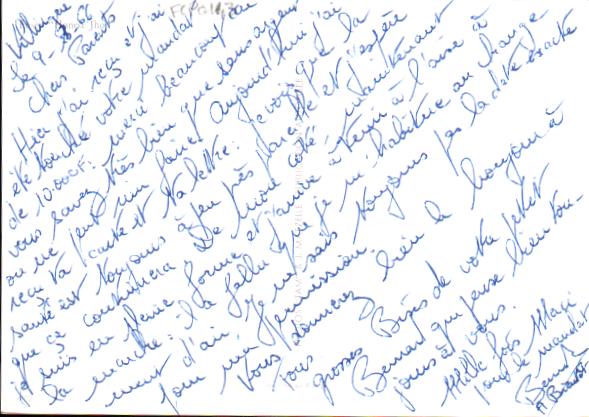 Villingen
le 9-8-66
FCPO 1167
Chers Parents
Hier j'ai reçu et j'ai
été touché votre mandat
de 10.000F. merci beaucoup car
vous savez très bien que sans argent
on ne peut rien faire. aujourd'hui j'ai
reçu ta carte et ta lettre. Je vois que la
santé est toujours à peu près placable et j'espère
que ça continuera. De mon coté, maintenant
je suis en pleine forme et j'arrive à tenir à l'aise à
la marche. Il a fallu que je m'habitue au change-
ment d'air. Je ne sais toujours pas la date exacte
pour ma permission.
Vous donnerez bien le bonjour à
tous
grosses Bises de votre petit
Bernard qui pense bien tou-
jours à vous.
Mille fois Merci
pour le mandat